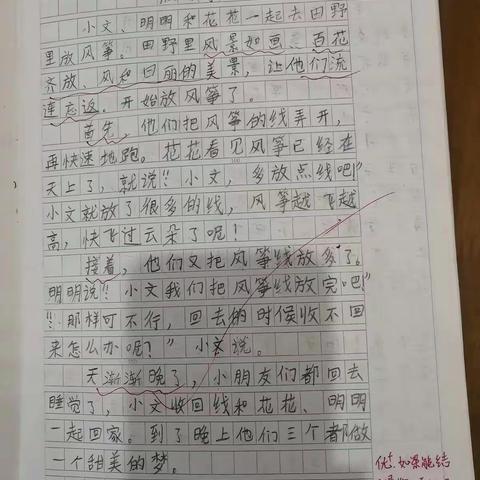 小文、明明和花花一起去田野
里放风筝。田野里风景如画、百花
齐放、风和日丽的美景，让他们流
连忘返。开始放风筝了。
首先，他们把风筝的线弄开，
再快速地跑。花花看见风筝已经在
天上了，就说："小文，多放点线吧！"
小文就放了很多的线，风筝越飞越
高，快飞过云朵了呢！
接着，他们又把风筝线放多了。
明明说："小文我们把风筝线放完吧！"
"那样可不行，回去的时候收不回
来怎么办呢？"小文说。
天渐渐晚了，小朋友们都回去
睡觉了，小文收回线和花花、明明
一起回家。到了晚上他们三个都做
一个甜美的梦。
优⁺如果能结